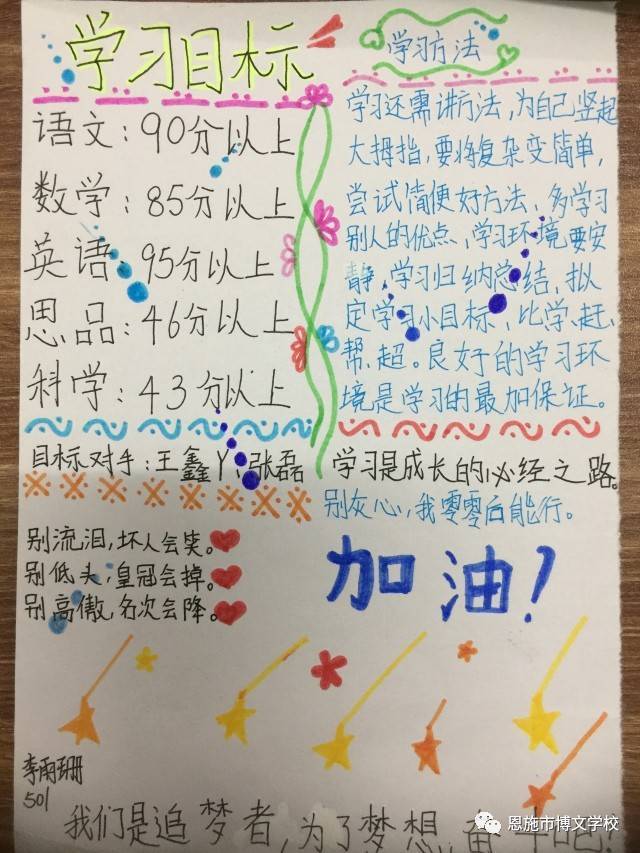 学习目标
语文：90分以上
数学：85分以上
英语：95分以上
思品：46分以上
科学：43分以上
目标对手：王鑫丫，张磊
别流泪，坏人会笑。
别低头，皇冠会掉。
别高傲，名次会降。
学习方法
学习还需讲方法，为自己竖起
大拇指，要将复杂变简单，
尝试简便好方法，多学习
别人的优点，学习环境要安
静，学习归纳总结，拟
定学习小目标，比学、赶、
帮、超。良好的学习环
境是学习的最加保证。
学习是成长的必经之路。
别灰心，我零零后能行。
加油！
李雨珊
501
我们是追梦者，为了梦想，奋斗吧！
恩施市博文学校